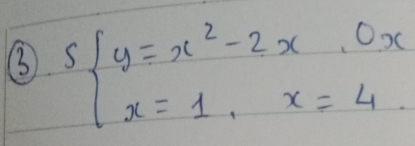 ③ S { y = x² - 2x , Ox
x = 1 , x = 4 .